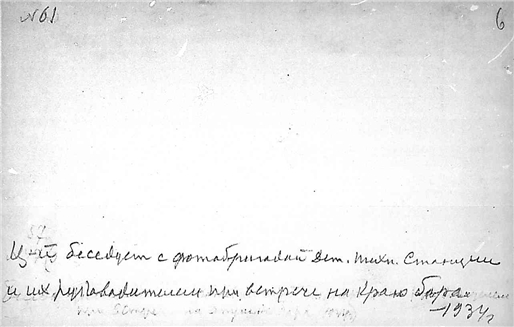 №61
6
Ц-ий беседует с фотобригадой Дет. техн. Станции
и их руководителем при встрече на краю бора.
1934г